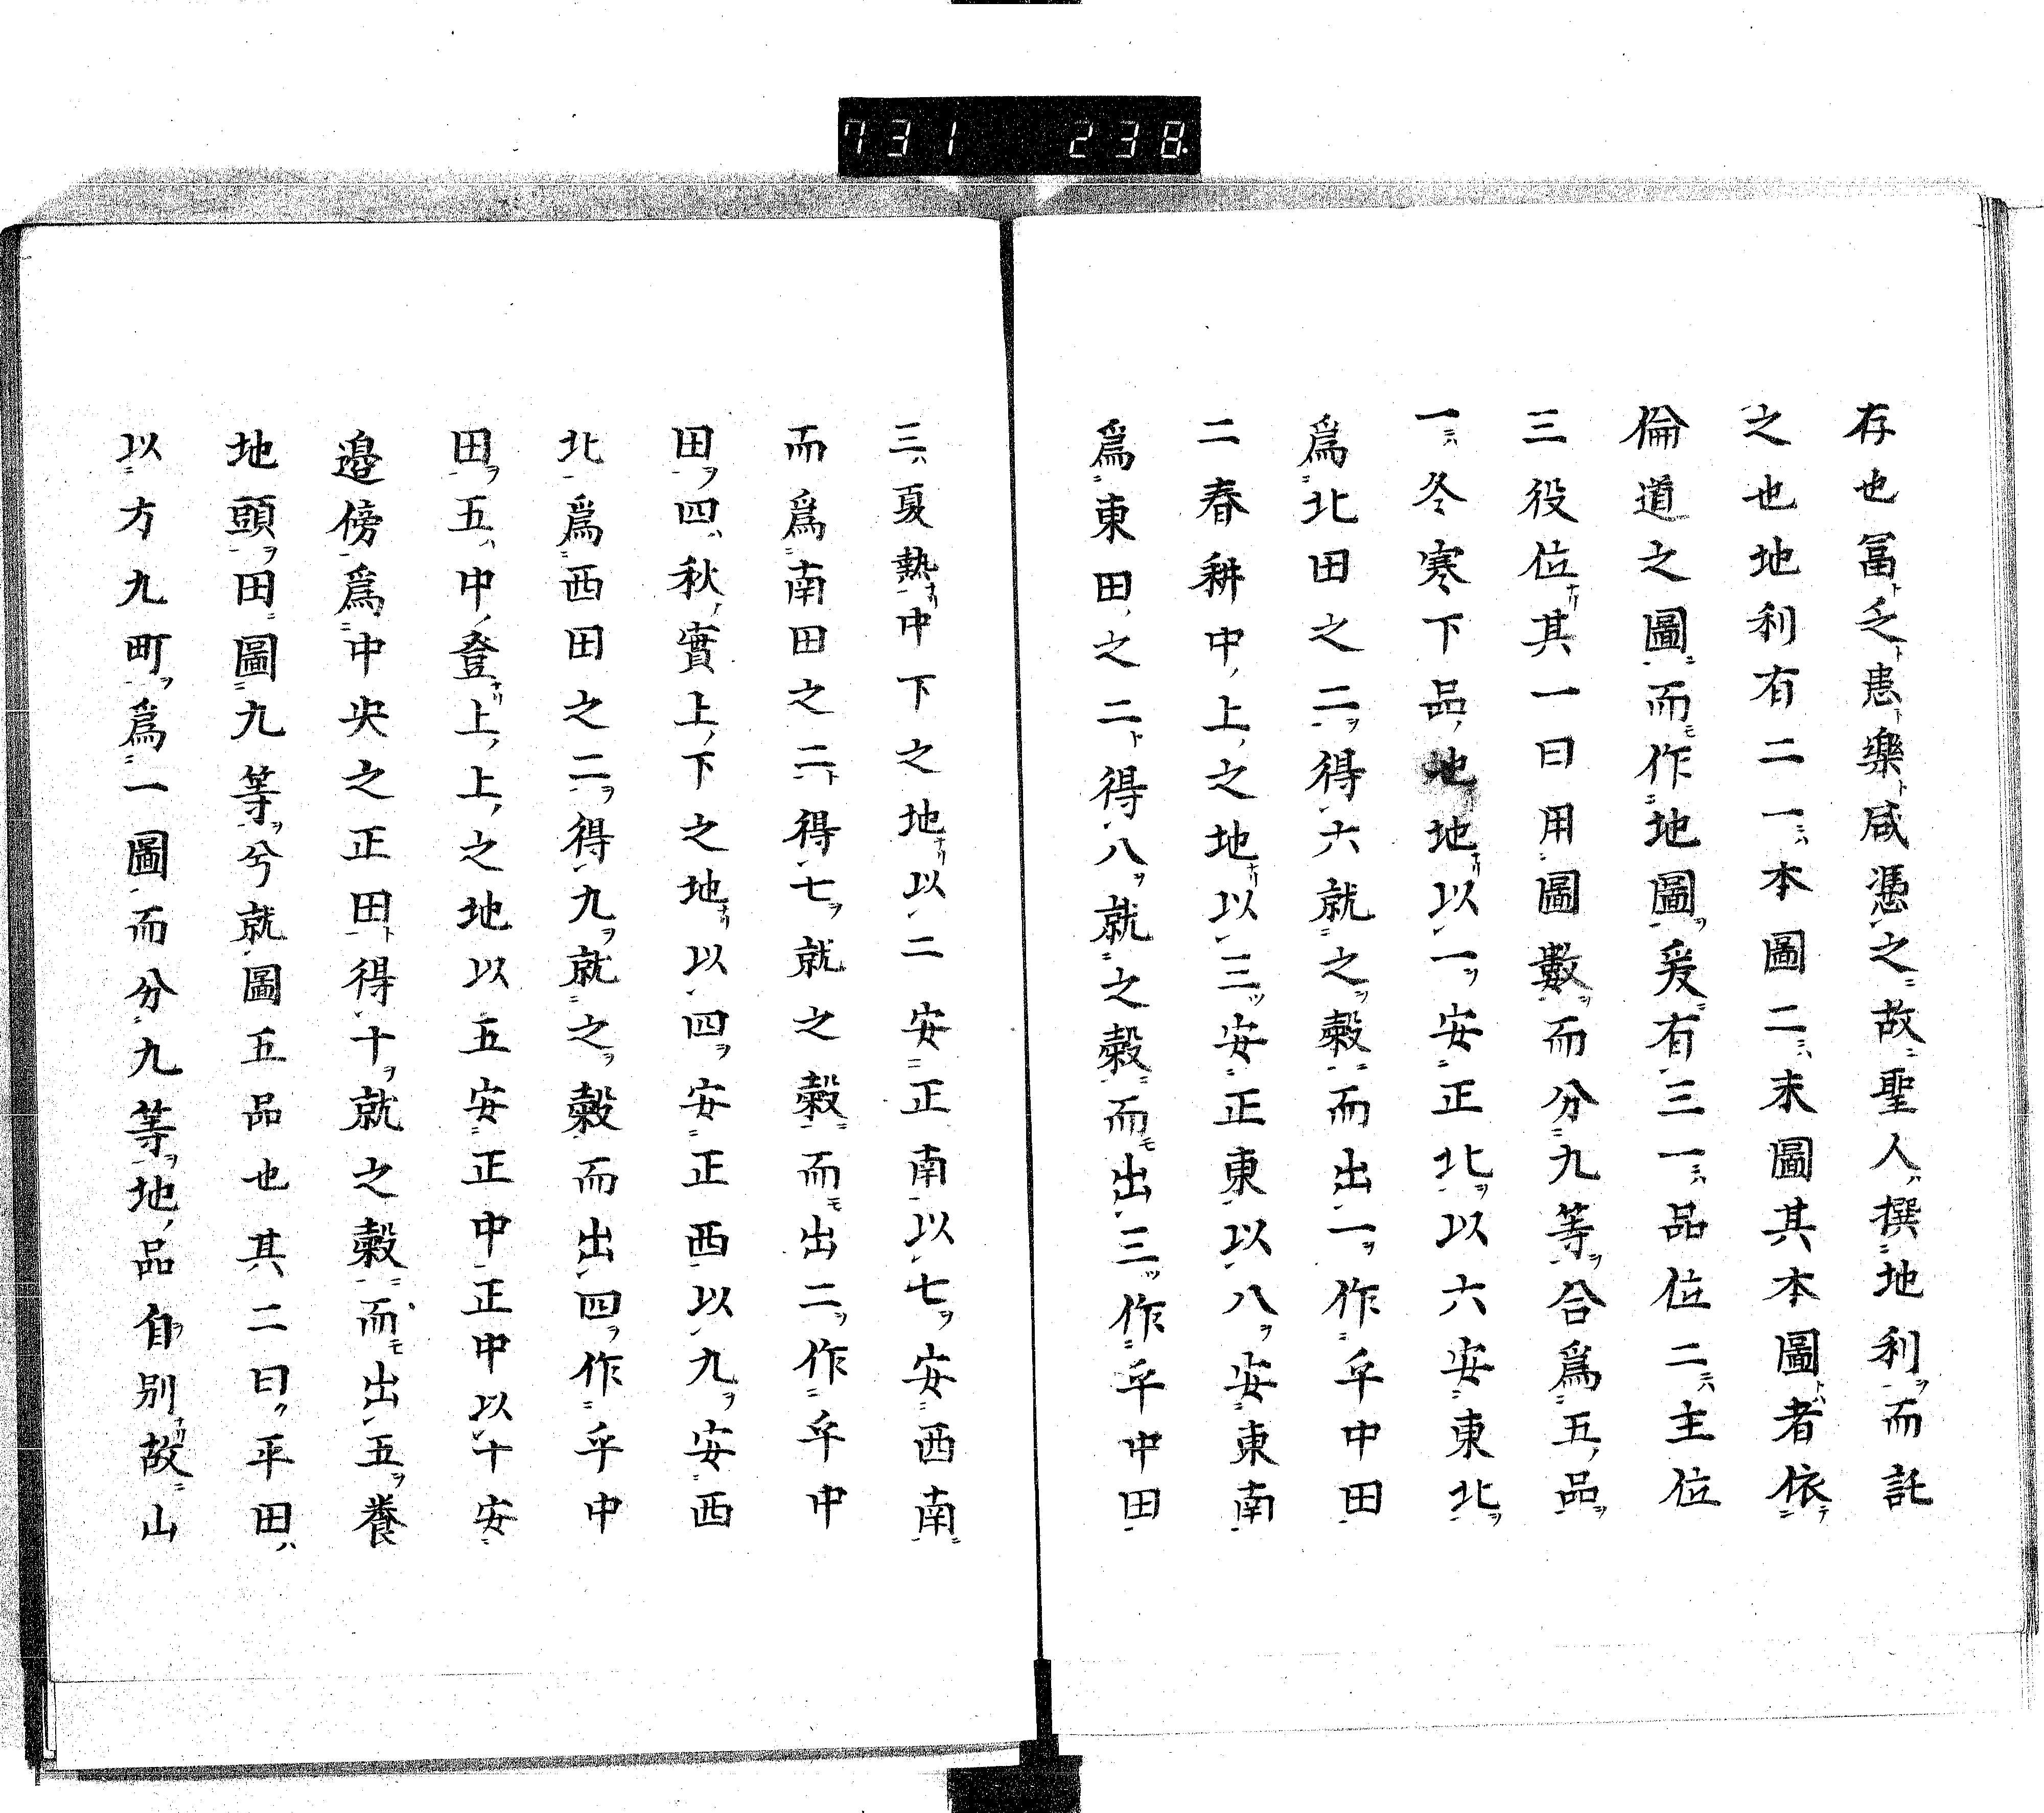 731 238
存也冨乏患樂咸憑之故聖人撰地利而託
之也地利有二一本圖二末圖其本圖者依
倫道之圖而作地圖爰有三一品位二主位
三役位其一曰用圖數而分九等合爲五品
一冬寒下品地地以一安正北以六安東北
爲北田之二得六就之穀而出一作乎中田
二春耕中上之地以三安正東以八安東南
爲東田之二得八就之穀而出三作乎中田
三夏熱中下之地以二安正南以七安西南
而爲南田之二得七就之穀而出二作乎中
田四秋實上下之地以四安正西以九安西
北爲西田之二得九就之穀而出四作乎中
田五中登上上之地以五安正中正中以十安
邉傍爲中央之正田得十就之穀而出五養
地頭田圖九等兮就圖五品也其二曰平田
以方九町爲一圖而分九等地品自别故山